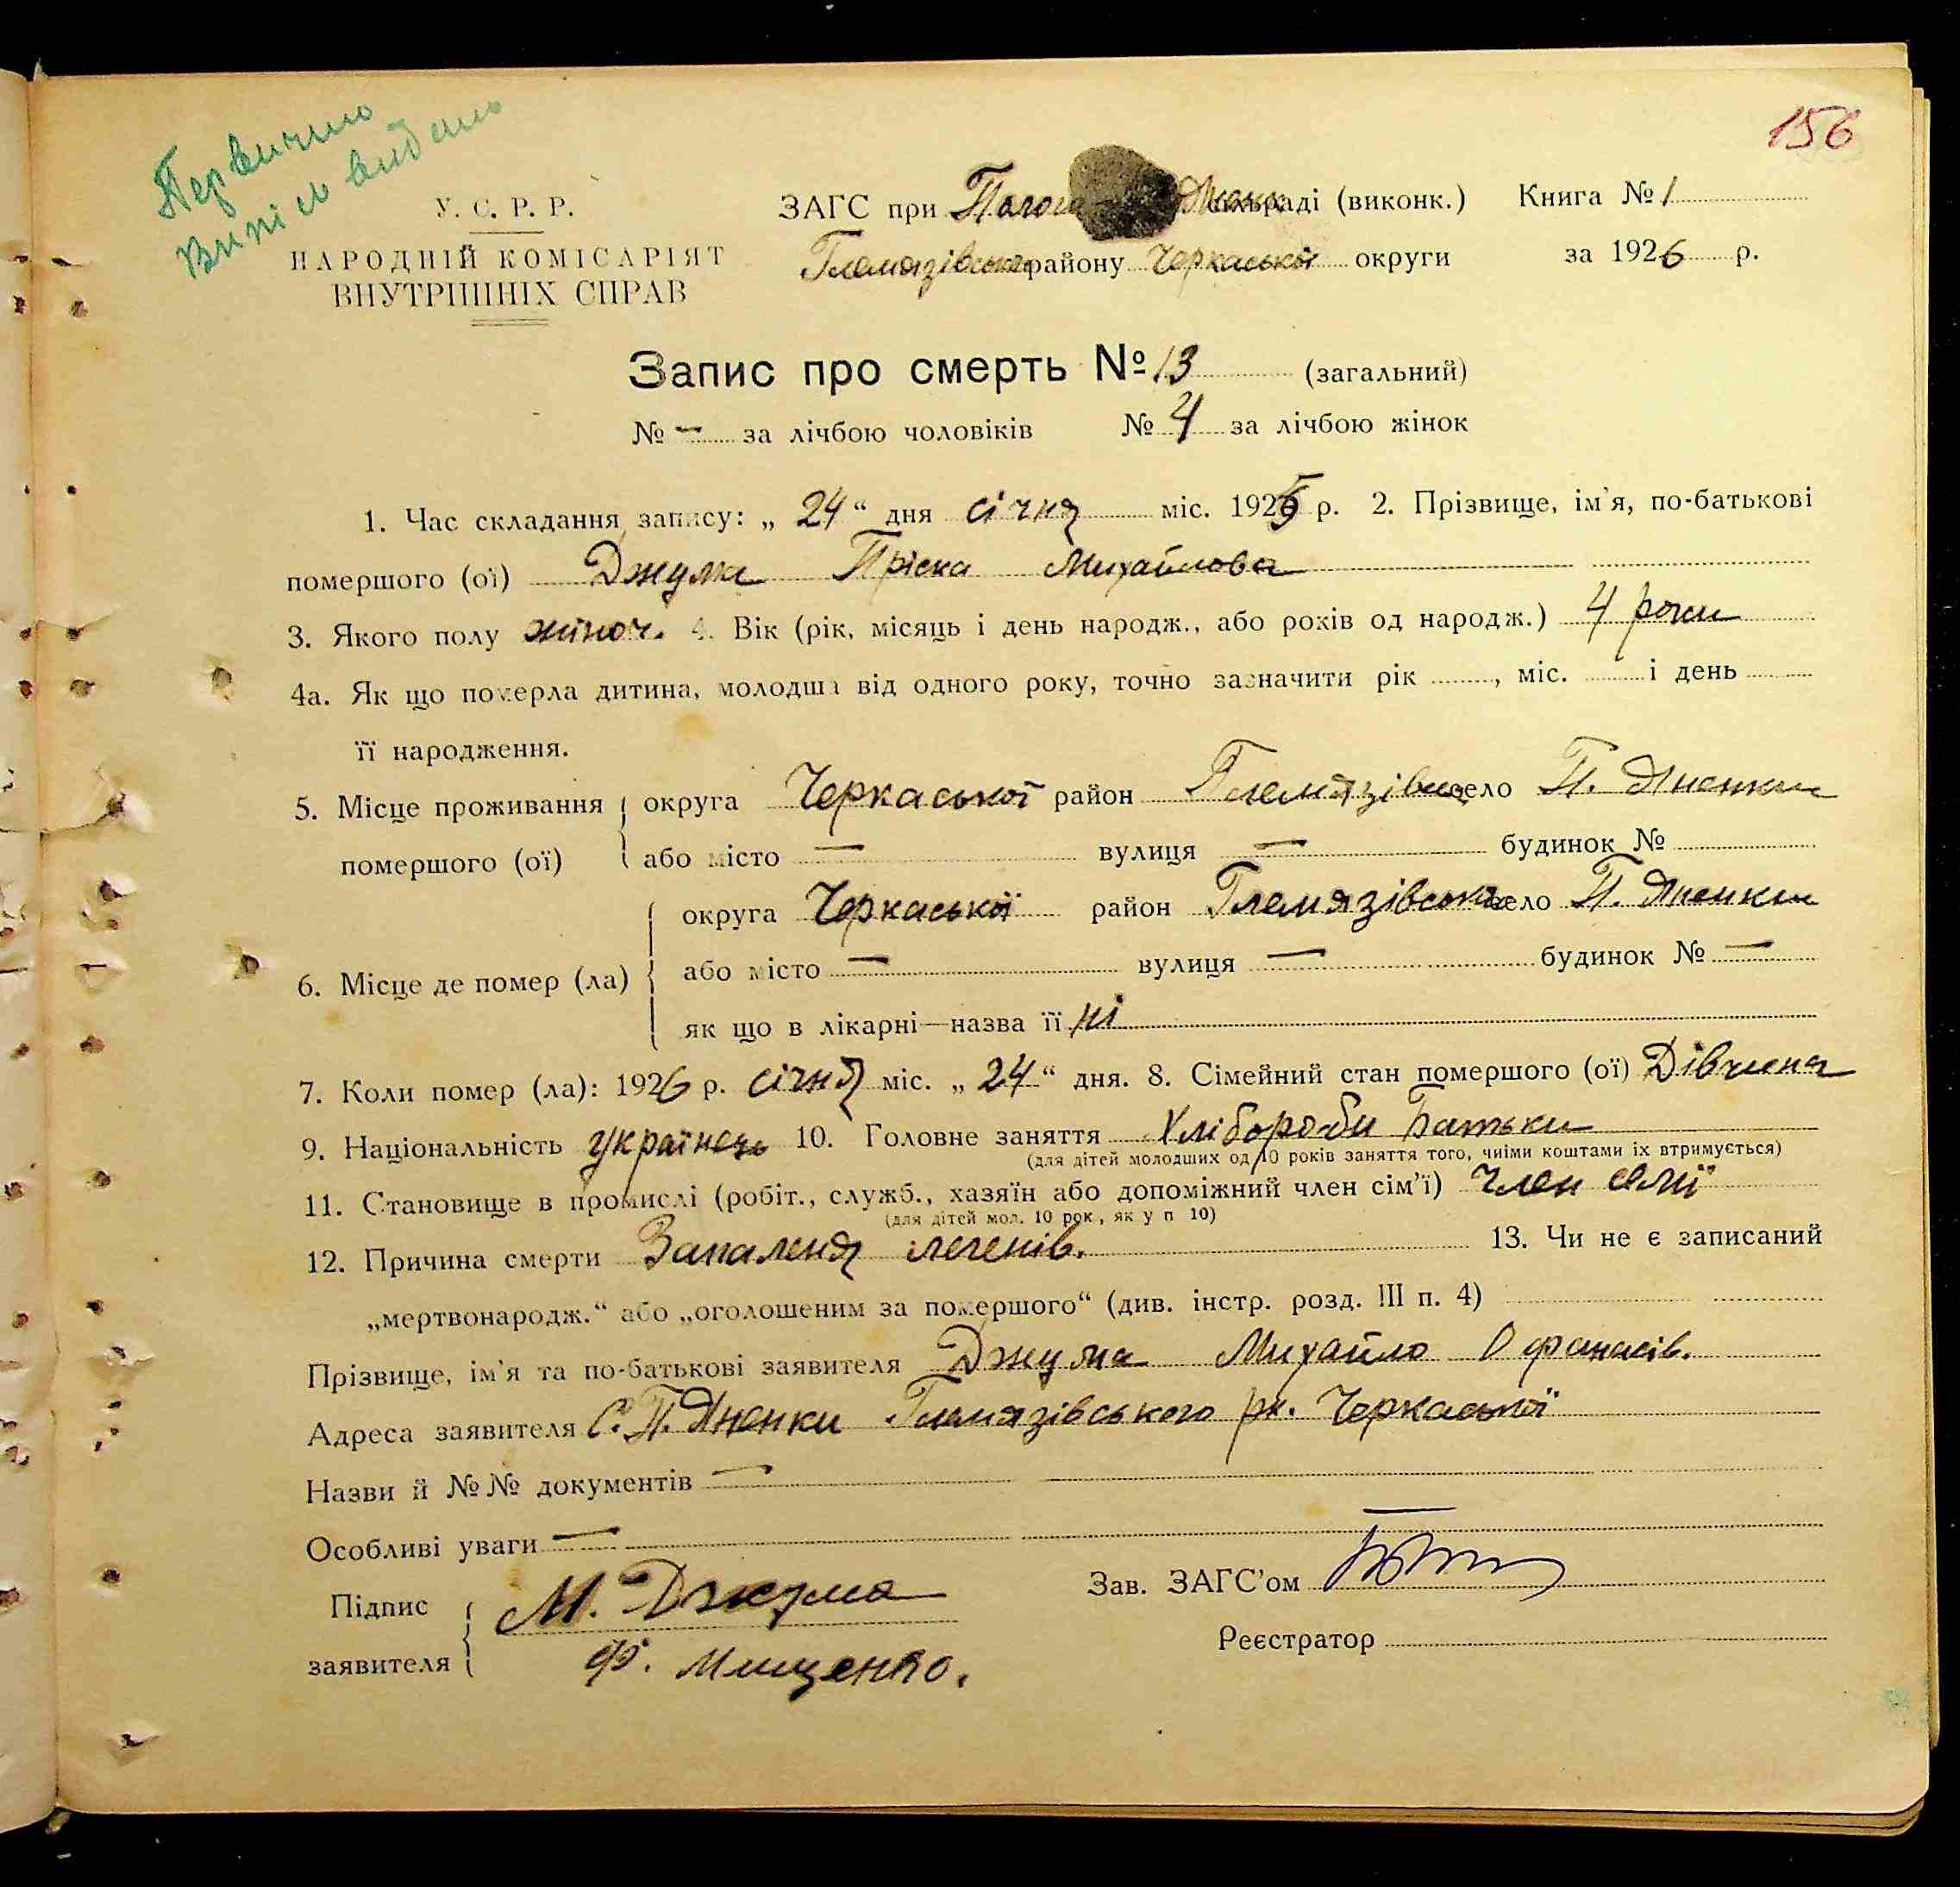 156
Первично
випіс видано
У. С. Р. Р.
НАРОДНІЙ КОМІСАРІЯТ
ВНУТРІШНІХ СПРАВ
ЗАГС при сільраді (виконк.) Книга № 1
Гельмязівськ району Черкаської округи за 1926 р.
Запис про смерть № 13 (загальний)
№ — за лічбою чоловіків № 4 за лічбою жінок
1. Час складання запису: „ 24 “ дня січня міс. 1926 р. 2. Прізвище, ім'я, по-батькові
помершого (ої) Джума Пріська Михайлова
3. Якого полу жіноч. 4. Вік (рік, місяць і день народж., або років од народж.) 4 роки
4а. Як що померла дитина, молодша від одного року, точно зазначити рік ........, міс. ........ і день ........
її народження.
5. Місце проживання помершого (ої) { округа Черкаської район село П. Яненки
або місто — вулиця — будинок №
6. Місце де помер (ла) { округа Черкаської район село П. Яненки
або місто — вулиця — будинок № —
як що в лікарні—назва її ні
7. Коли помер (ла): 1926 р. січня міс. „ 24 “ дня. 8. Сімейний стан помершого (ої) Дівчина
9. Національність українець 10. Головне заняття Хлібороби Батьки
(для дітей молодших од 10 років заняття того, чиїми коштами їх втримується)
11. Становище в промислі (робіт., служб., хазяїн або допоміжний член сім'ї) Член семї
(для дітей мол. 10 рок., як у п 10)
12. Причина смерти Запаленя легенів. 13. Чи не є записаний
„мертвонародж.“ або „оголошеним за помершого“ (див. інстр. розд. III п. 4)
Прізвище, ім'я та по-батькові заявителя Джума Михайло Офанасів.
Адреса заявителя С. П. Яненки Гельмязівського рн. Черкаської
Назви й №№ документів —
Особливі уваги —
Підпис заявителя { М. Джума
Ф. Мищенко.
Зав. ЗАГС'ом
Реєстратор